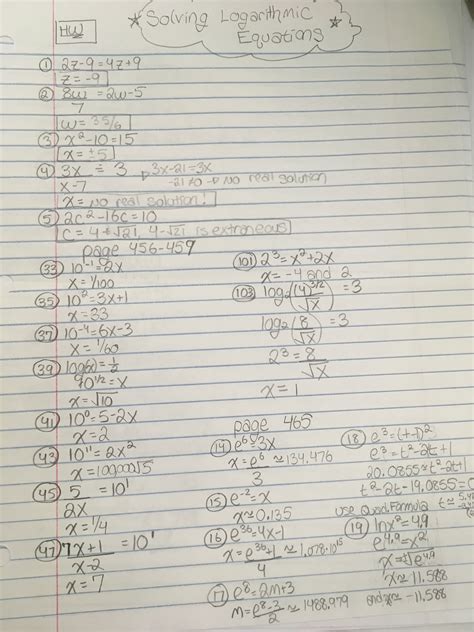 HW
★ Solving Logarithmic ★
Equations
① 2z-9=4z+9
z=-9
② 8w/7 = 2w-5
w=35/6
③ x²-10=15
x=±5
④ 3x/x-7 = 3 → 3x-21=3x
-21≠0 → No real solution
x = No real solution!
⑤ 2c²-16c=10
c = 4+√21, 4-√21 is extraneous
page 456-459
33 10⁻¹=2x
x=1/100
35 10²=3x+1
x=33
37 10⁻⁴=6x-3
x=1/60
39 log(x)=1/2
10^1/2=x
x=√10
41 10⁰=5-2x
x=2
43 10¹¹=2x²
x=100000√5
45 5/2x = 10¹
x=1/4
47 7x+1/x-2 = 10¹
x=7
101 2³=x²+2x
x=-4 and 2
103 log₂(4^3/2/√x)=3
log₂(8/√x)=3
2³=8/√x
x=1
page 465
14 e⁶=3x
x=e⁶/3≈134.476
15 e⁻²=x
x≈0.135
16 e³⁶=4x-1
x=e³⁶+1/4≈1.078·10¹⁵
17 e⁸=2m+3
m=e⁸-3/2≈1488.979
18 e³=(t-1)²
e³=t²-2t+1
20.0855≈t²-2t+1
t²-2t-19.0855=0
use Quad. Formula t≈
19 lnx²=4.9
e^4.9=x²
x=±√e^4.9
x≈11.588
and x≈-11.588